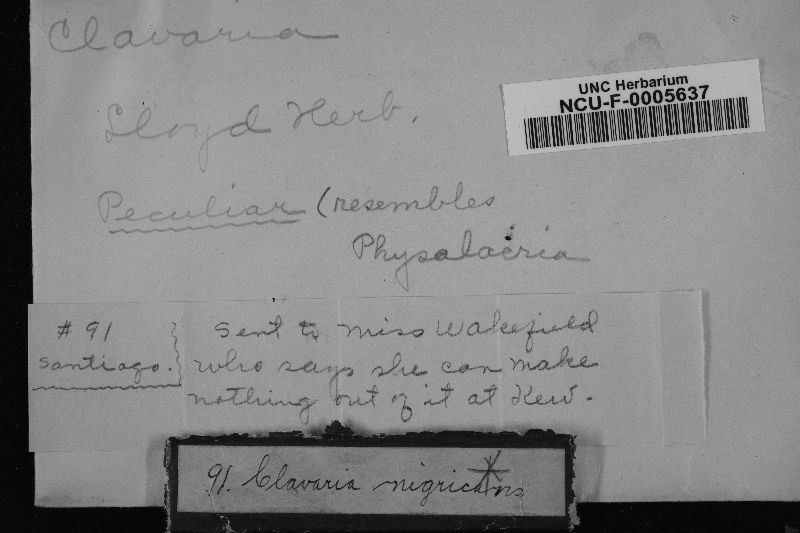 Clavaria
UNC Herbarium
NCU-F-0005637
Lloyd Herb.
Peculiar (resembles
Physalacria
# 91
Santiago.
Sent to Miss Wakefield
who says she can make
nothing out of it at Kew.
91. Clavaria nigricans